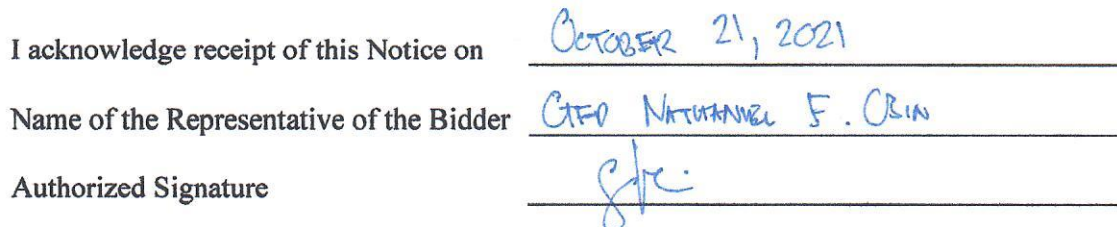 I acknowledge receipt of this Notice on OCTOBER 21, 2021
Name of the Representative of the Bidder NATHANIEL F.
Authorized Signature